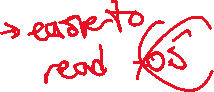 → easier to
read